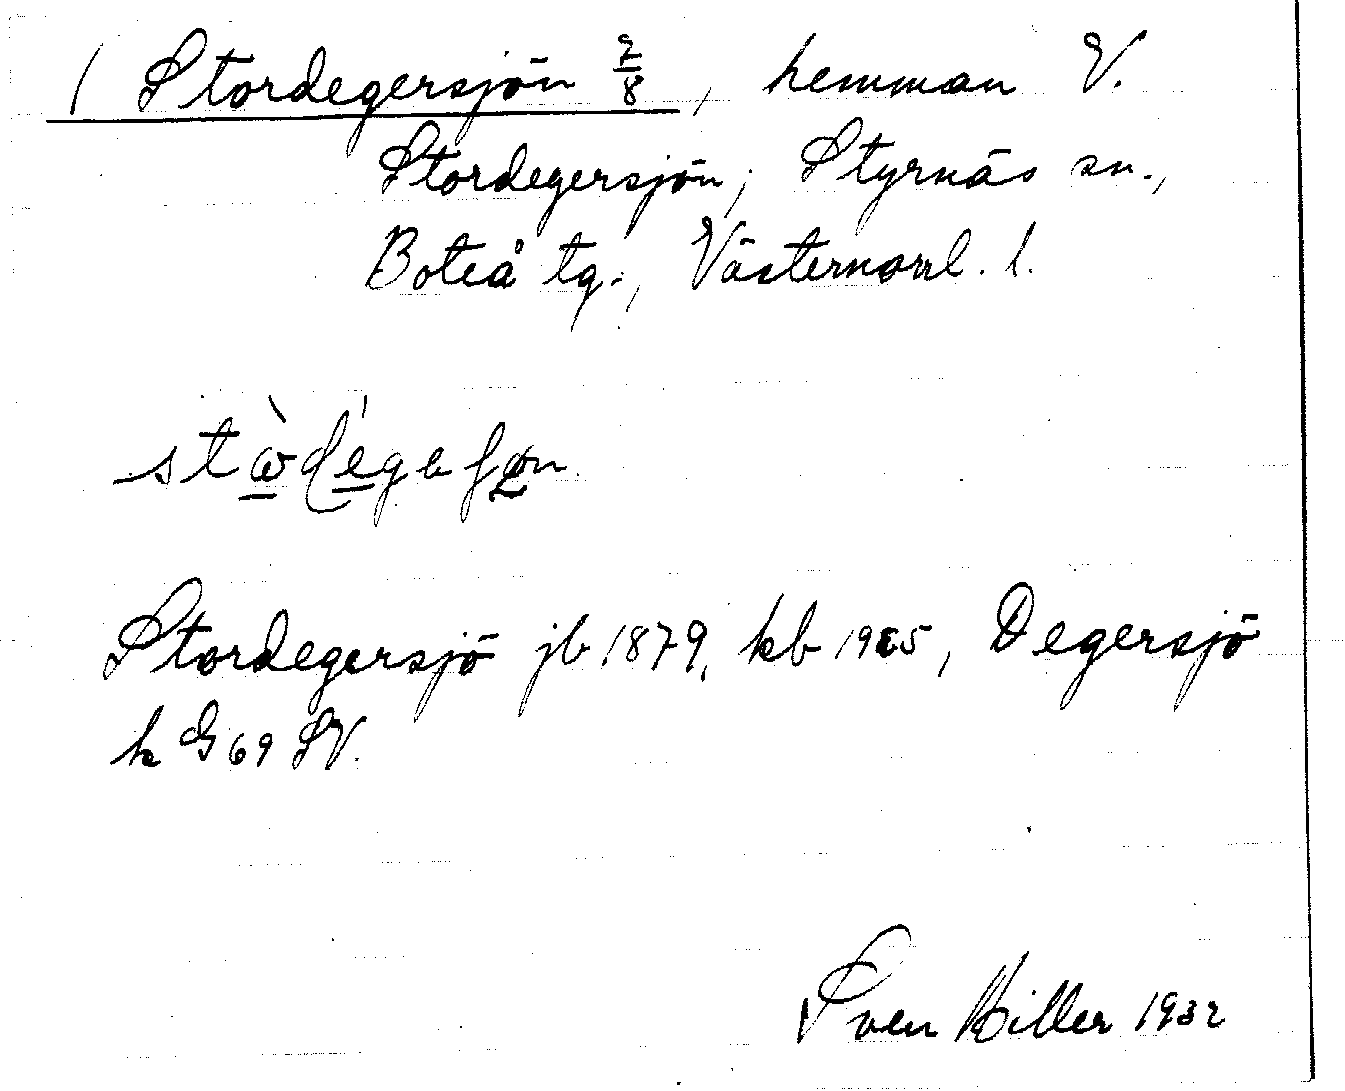 ( Stordegersjön 7/8, hemman V.
Stordegersjön, Styrnäs sn.,
Boteå tg., Västernorrl. l.
Stordegersjö jb 1879, kb 1925, Degersjö
k G 69 SV.
Sven Hiller 1932